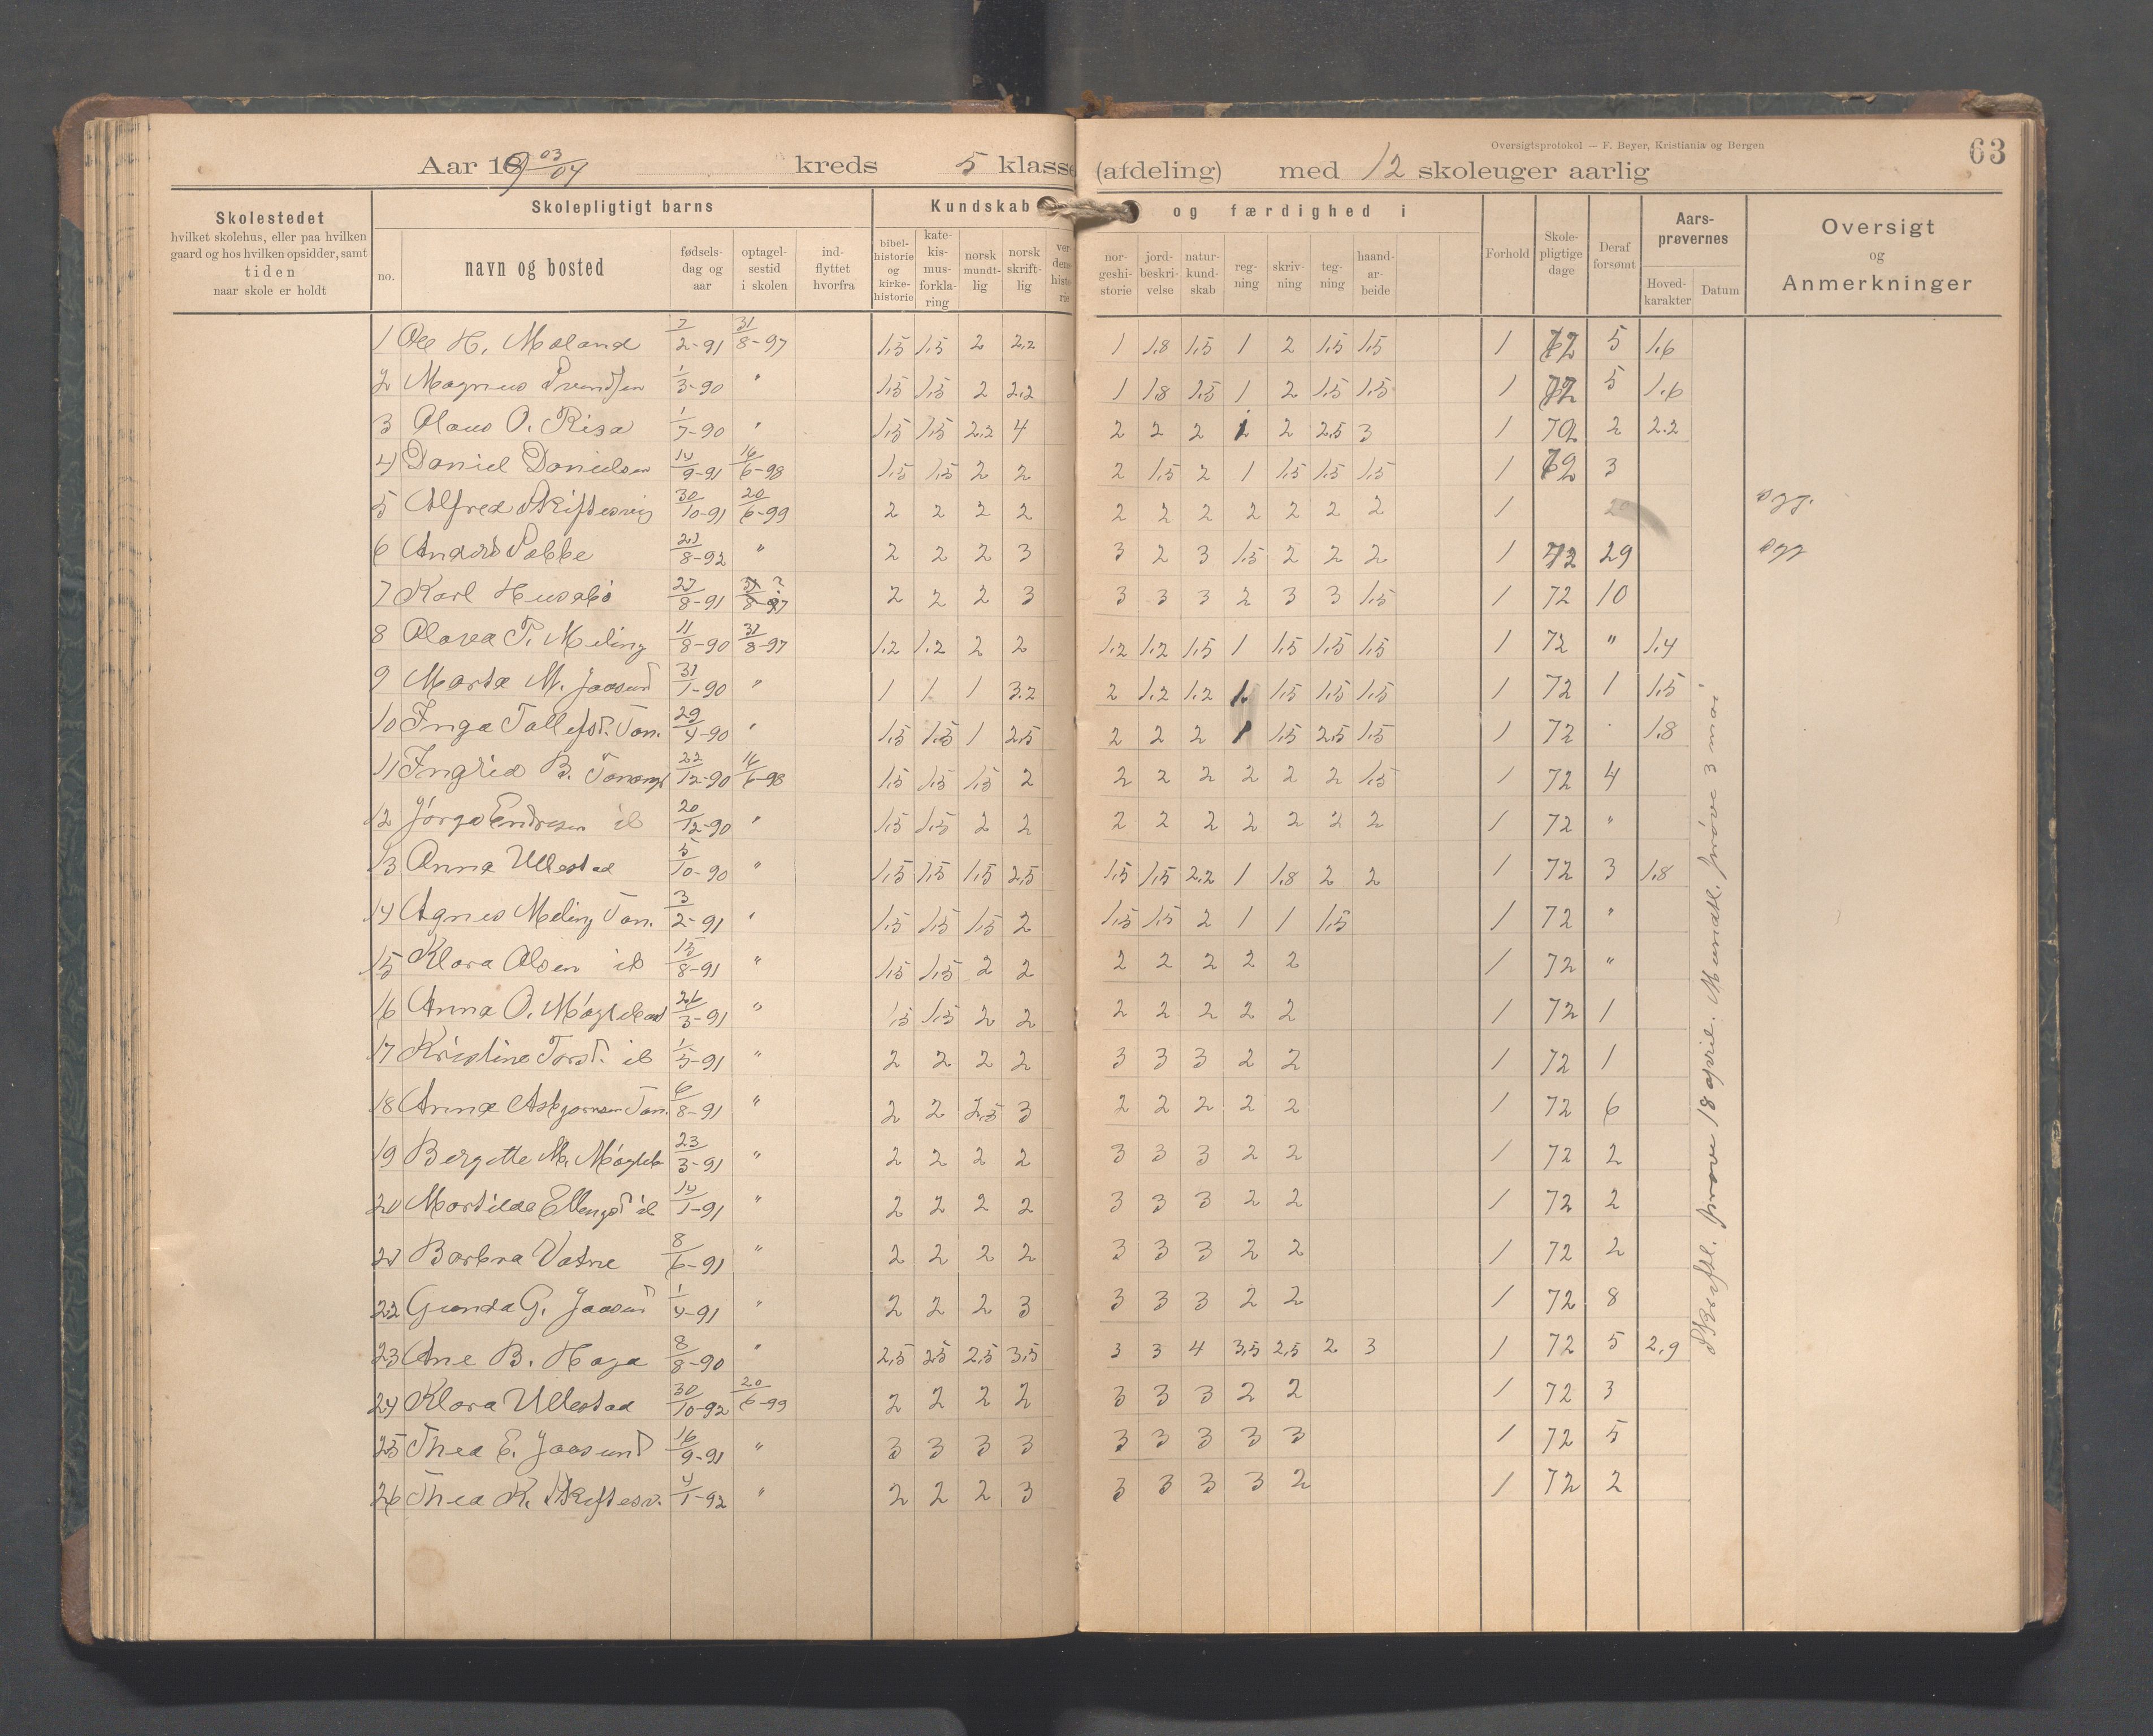 Oversigtsprotokol — F. Beyer, Kristiania og Bergen
63
Aar 1903/04 kreds 5 klasse (afdeling) med 12 skoleuger aarlig
Skolestedet
hvilket skolehus, eller paa hvilken
gaard og hos hvilken opsidder, samt
tiden
naar skole er holdt
Skolepligtigt barns
no.
navn og bosted
fødsels-
dag og
aar
optagel-
sestid
i skolen
ind-
flyttet
hvorfra
Kundskab og færdighed i
bibel-
historie
og
kirke-
historie
kate-
kis-
mus-
forkla-
ring
norsk
mundt-
lig
norsk
skrift-
lig
ver-
dens-
histo-
rie
nor-
geshi-
storie
jord-
beskri-
velse
natur-
kund-
skab
reg-
ning
skriv-
ning
teg-
ning
haand-
ar-
beide
Forhold
Skole-
pligtige
dage
Deraf
forsømt
Aars-
prøvernes
Hoved-
karakter
Datum
Oversigt
og
Anmerkninger
1 Ole H. Meland 7/2-91 31/8-97 1,5 1,5 2 2,2 1 1,8 1,5 1 2 1,5 1,5 1 72 5 1,6
2 Magnus Svendsen 1/3-90 " 1,5 1,5 2 2,2 1 1,8 1,5 1 2 1,5 1,5 1 72 5 1,6
3 Olaus O. Risa 1/7-90 " 1,5 1,5 2,2 4 2 2 2 1 2 2,5 3 1 72 2 2.2
4 Daniel Danielsen 14/9-91 16/6-98 1,5 1,5 2 2 2 1,5 2 1 1,5 1,5 1,5 1 72 3
5 Alfred Skiftesvig 30/10-91 20/6-99 2 2 2 2 2 2 2 2 2 2 2 1 syg.
6 Anders 21/8-92 " 2 2 2 3 3 2 3 1,5 2 2 2 1 72 29 syg
7 Karl Husebø 27/8-91 31/8-97 2 2 2 3 3 3 3 2 3 3 1,5 1 72 10
8 Olava T. Meling 11/8-90 31/8-97 1.2 1.2 2 2 1.2 1.2 1,5 1 1,5 1,5 1,5 1 72 " 1,4
9 Marta M. Jaasund 31/1-90 " 1 1 1 3.2 2 1.2 1.2 1 1,5 1,5 1,5 1 72 1 1,5
10 Inga Tollefsd. Tan. 29/4-90 " 1,5 1,5 1 2,5 2 2 2 1 1,5 2,5 1,5 1 72 . 1,8
11 Ingrid B. Tananger 22/12-90 16/6-98 1,5 1,5 1,5 2 2 2 2 2 2 2 1,5 1 72 4
12 Jørga Endresen ib 20/12-90 " 1,5 1,5 2 2 2 2 2 2 2 2 2 1 72 "
13 Anna Ullestad 5/10-90 " 1,5 1,5 1,5 2,5 1,5 1,5 2,2 1 1,8 2 2 1 72 3 1,8
14 Agnes Meling Tan. 3/2-91 " 1,5 1,5 1,5 2 1,5 1,5 2 1 1 1,5 1 72 "
15 Klara Olsen ib 15/8-91 " 1,5 1,5 2 2 2 2 2 2 2 1 72 "
16 Anna O. Møglebost 26/3-91 " 1,5 1,5 2 2 2 2 2 2 2 1 72 1
17 Kristine Torsd. ib 1/5-91 " 2 2 2 2 3 3 3 2 2 1 72 1
18 Anna Asbjørnsen Tan. 6/8-91 " 2 2 2,5 3 2 2 2 2 2 1 72 6
19 Bergitte M. Møgleb 23/3-91 " 2 2 2 2 3 3 3 2 2 1 72 2
20 Martilda Ellengsd ib 14/1-91 " 2 2 2 2 3 3 3 2 2 1 72 2
21 Barbra Vatne 8/6-91 " 2 2 2 2 3 3 3 2 2 1 72 2
22 Gunda G. Jaasund 1/4-91 " 2 2 2 3 3 3 3 2 2 1 72 8
23 Ane B. Haga 8/8-90 " 2,5 2,5 2,5 3,5 3 3 4 3,5 2,5 2 3 1 72 5 2,9
24 Klara Ullestad 30/10-92 20/6-99 2 2 2 2 3 3 3 2 2 1 72 3
25 Thea E. Jaasund 16/9-91 " 3 3 3 3 3 3 3 3 3 1 72 5
26 Thea K. Skiftesv. 4/1-92 " 2 2 2 3 3 3 3 3 2 1 72 2
Skriftl. prøve 18 april. Mundtl. prøve 3 mai